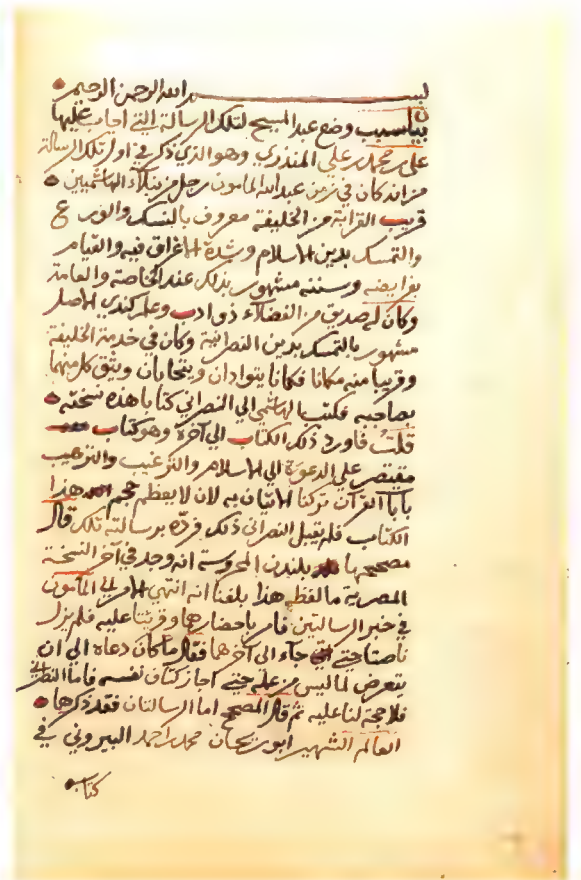 بسم الله الرحمن الرحيم
بيان سبب وضع عبد المسيح لتلك الرسالة التي اجاب عليها
علي بن محمد بن علي المنذري وهو الذي ذكر في اول تلك الرسالة
من انه كان في زمن عبد الله المامون رجل من نبلاء الهاشميين
قريب القرابة من الخليفة معروف بالنسك والورع
والتمسك بدين الاسلام وشدة الاغراق فيه والقيام
بفرايضه وسننه مشهور بذلك عند الخاصة والعامة
وكان له صديق من الفضلاء ذو ادب وعلم كندي الاصل
مشهور بالتمسك بدين النصرانية وكان في خدمة الخليفة
وقريبا منه مكانا فكانا يتوادان ويتحابان ويثق كل منهما
بصاحبه فكتب الهاشمي الي النصراني كتابا هذه نسخته
قلت فاورد ذلك الكتاب الي آخره وهو كتاب
مقتصر علي الدعوة الي الاسلام والترغيب والترهيب
بآيات القرآن تركنا الاتيان به لان لا يعظم حجم هذا
الكتاب فلم يقبل النصراني ذلك فرده برسالته تلك قال
مصححها بلندن المحروسة انه وجد في آخر النسخة
المصرية ما لفظه هذا بلغنا انه انتهي الامر الي المأمون
في خبر الرسالتين فامر باحضارهما وقريتا عليه فلم يزل
ناصتا حتي جاء الي آخرهما فقال ما كان دعاه الي ان
يتعرض لما ليس من عمله حتي اجاز كتاف نفسه فاما النصراني
فلا حجة لنا عليه ثم قال المصحح اما الرسالتان فقد ذكرها
العالم الشهير ابو ريحان محمد بن احمد البيروني في
كتاب